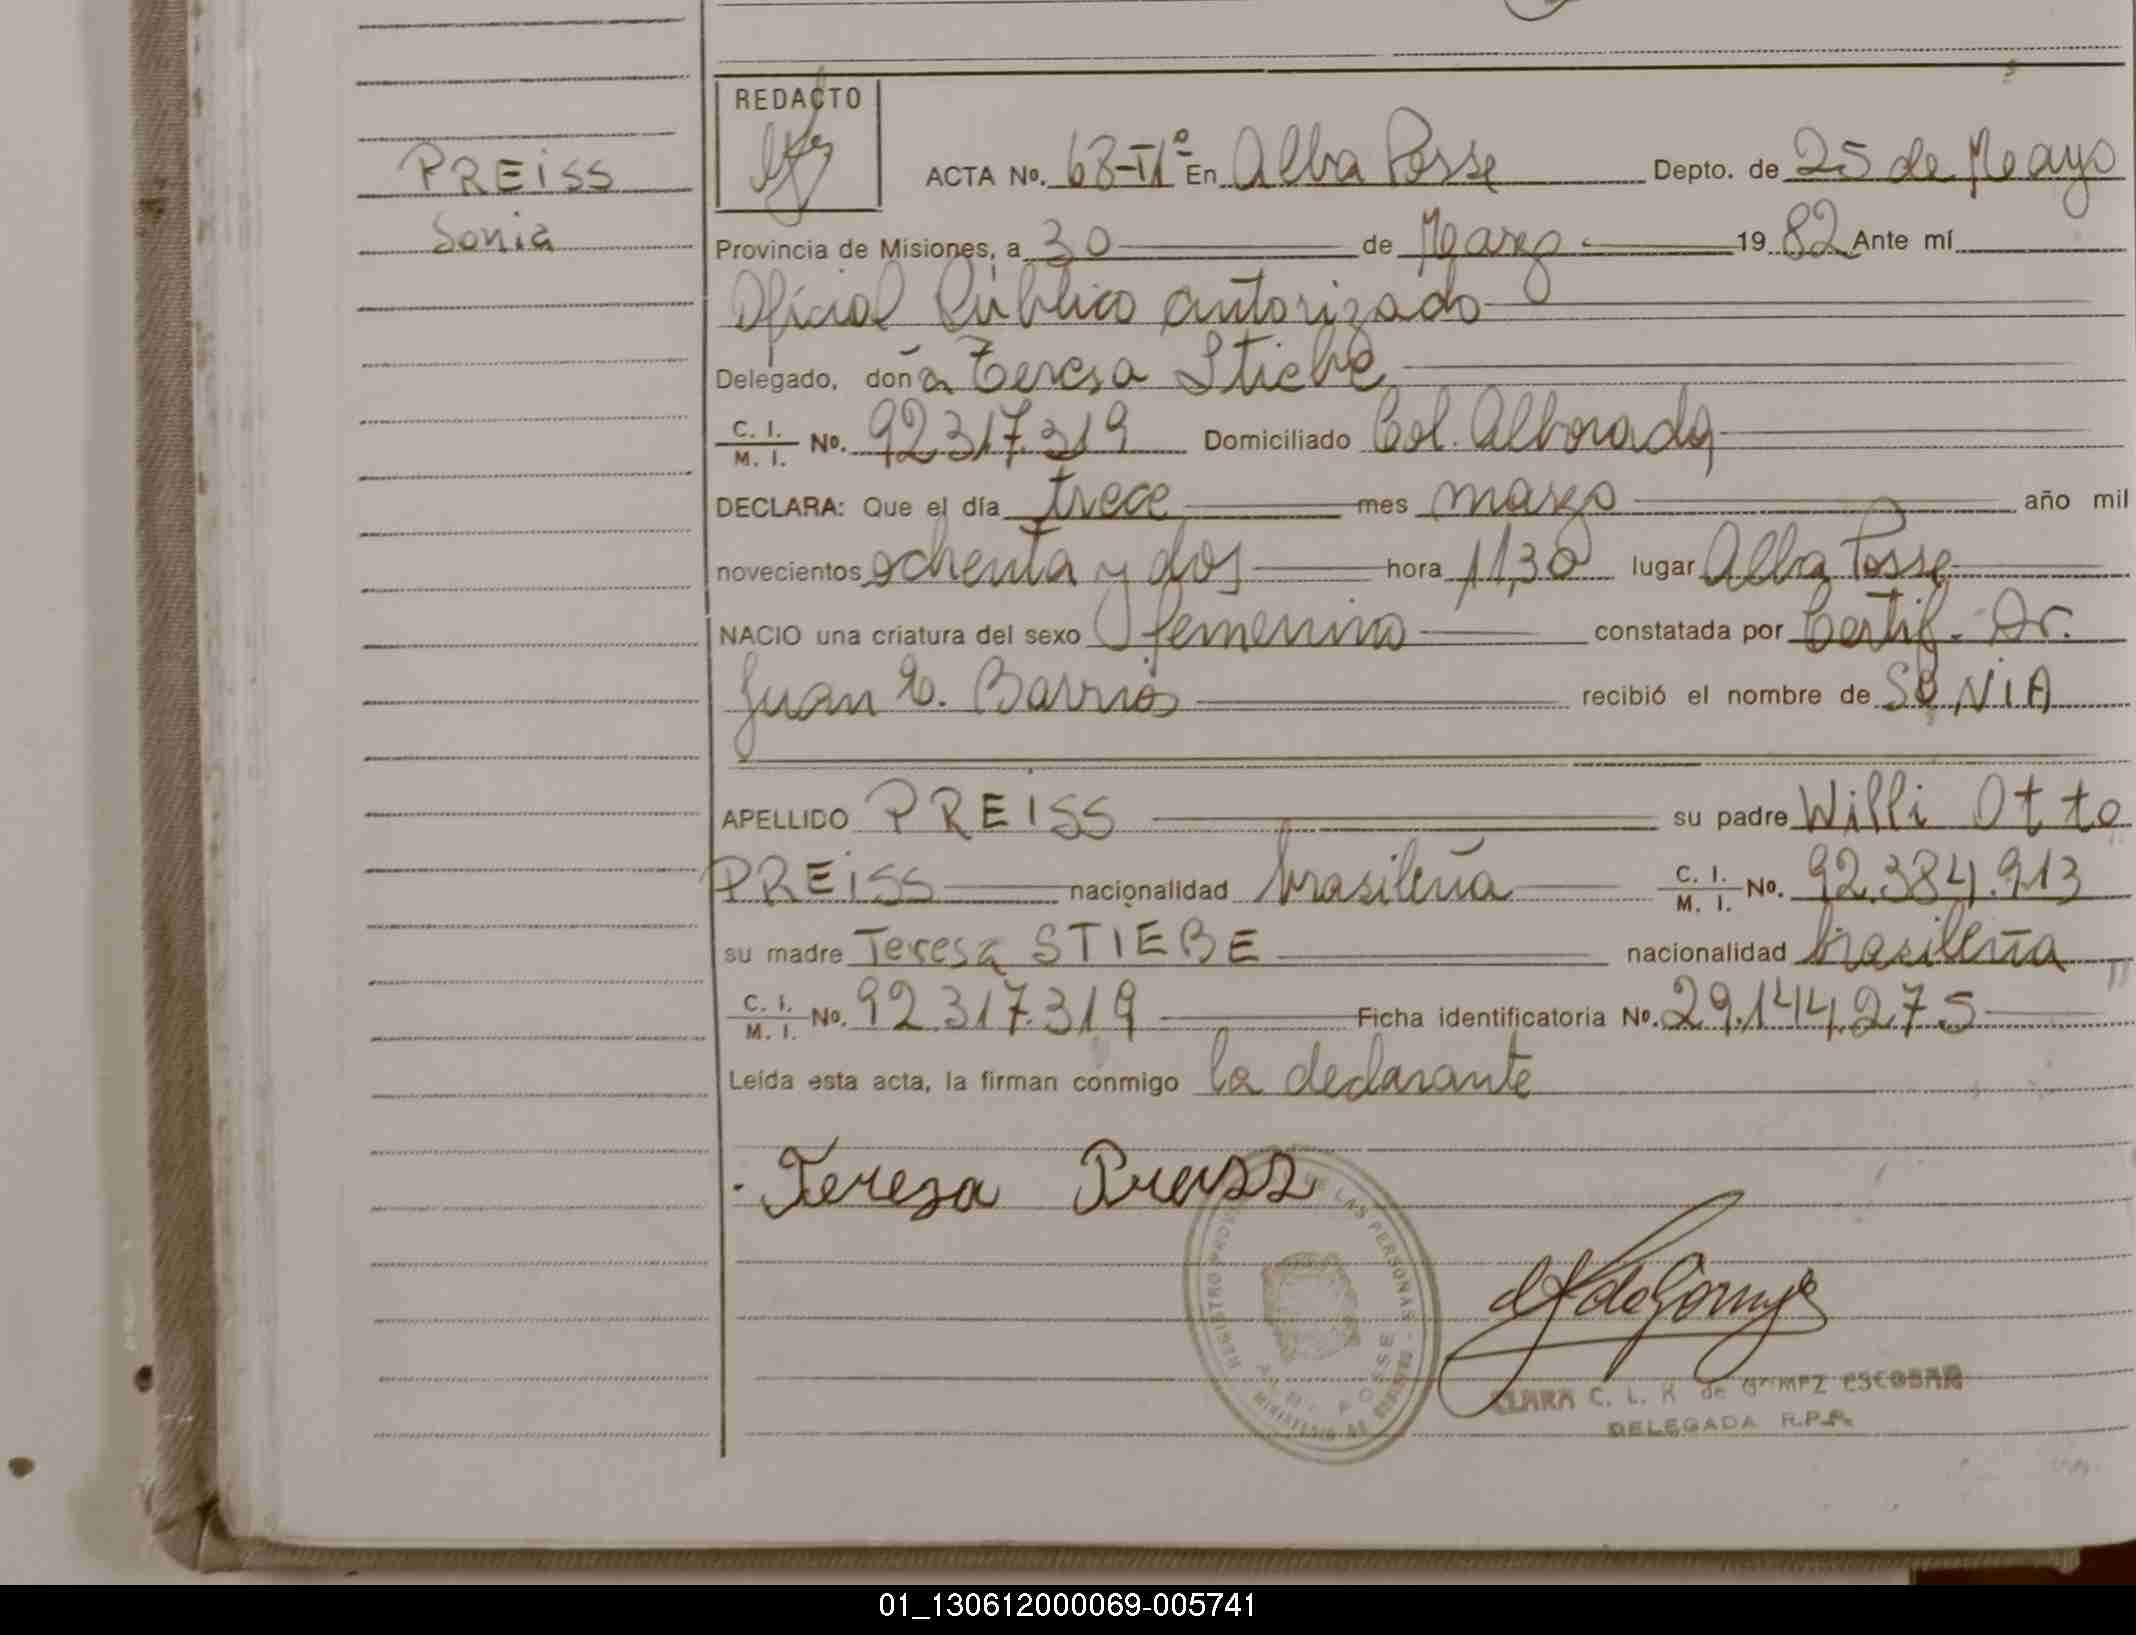 PREISS
Sonia
REDACTO
ACTA No. 68-II° En Alba Posse Depto. de 25 de Mayo
Provincia de Misiones, a 30 de Marzo 1982 Ante mí
Oficial Público autorizado
Delegado, doña Teresa Stiebe
C. I. M. I. No. 92.317.319 Domiciliado Col. Alborada
DECLARA: Que el día trece mes marzo año mil
novecientos ochenta y dos hora 11,30 lugar Alba Posse
NACIO una criatura del sexo femenino constatada por Certif. Dr.
Juan E. Barrios recibió el nombre de SONIA
APELLIDO PREISS su padre Willi Otto
PREISS nacionalidad brasileña C. I. M. I. No. 92.384.913
su madre Teresa STIEBE nacionalidad brasileña
C. I. M. I. No. 92.317.319 Ficha identificatoria No. 29.144.275
Leída esta acta, la firman conmigo la declarante
Teresa Preiss
REGISTRO PROV DE LAS PERSONAS
ALBA POSSE
MINISTERIO DE GOBIERNO
CLARA C. L. K de GOMEZ ESCOBAR
DELEGADA R.P.P.
01_130612000069-005741